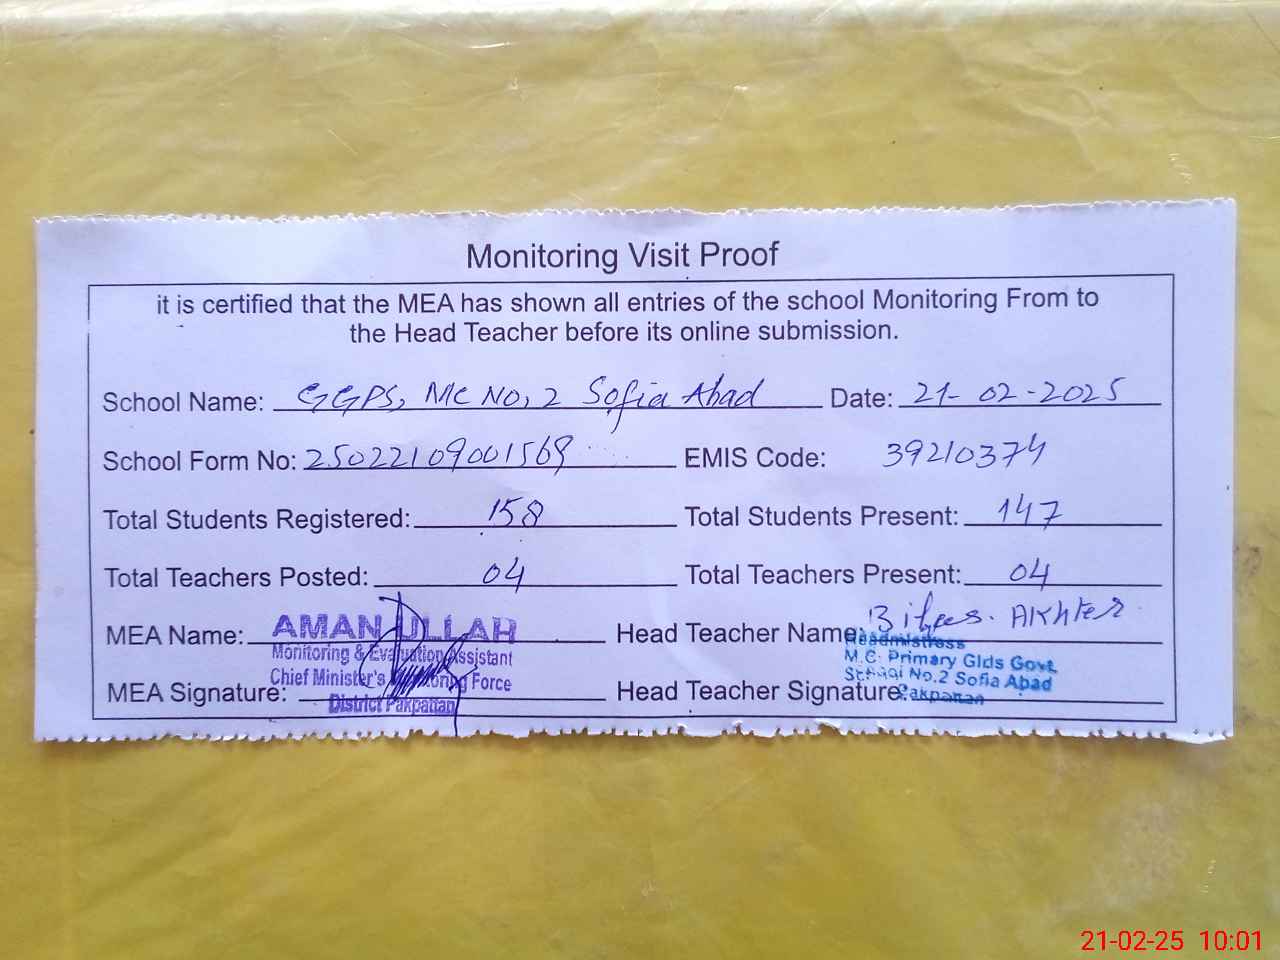 Monitoring Visit Proof
it is certified that the MEA has shown all entries of the school Monitoring From to
the Head Teacher before its online submission.
School Name: GGPS, MC NO, 2 Sofia Abad Date: 21-02-2025
School Form No: 25022109001569 EMIS Code: 39210374
Total Students Registered: 158 Total Students Present: 147
Total Teachers Posted: 04 Total Teachers Present: 04
MEA Name: AMAN ULLAH Head Teacher Name: Akhter
Monitoring & Evaluation Assistant
Chief Minister's Monitoring Force
District Pakpattan
Headmistress
M.C. Primary Glds Govt.
School No.2 Sofia Abad
Pakpattan
MEA Signature: Head Teacher Signature:
21-02-25 10:01